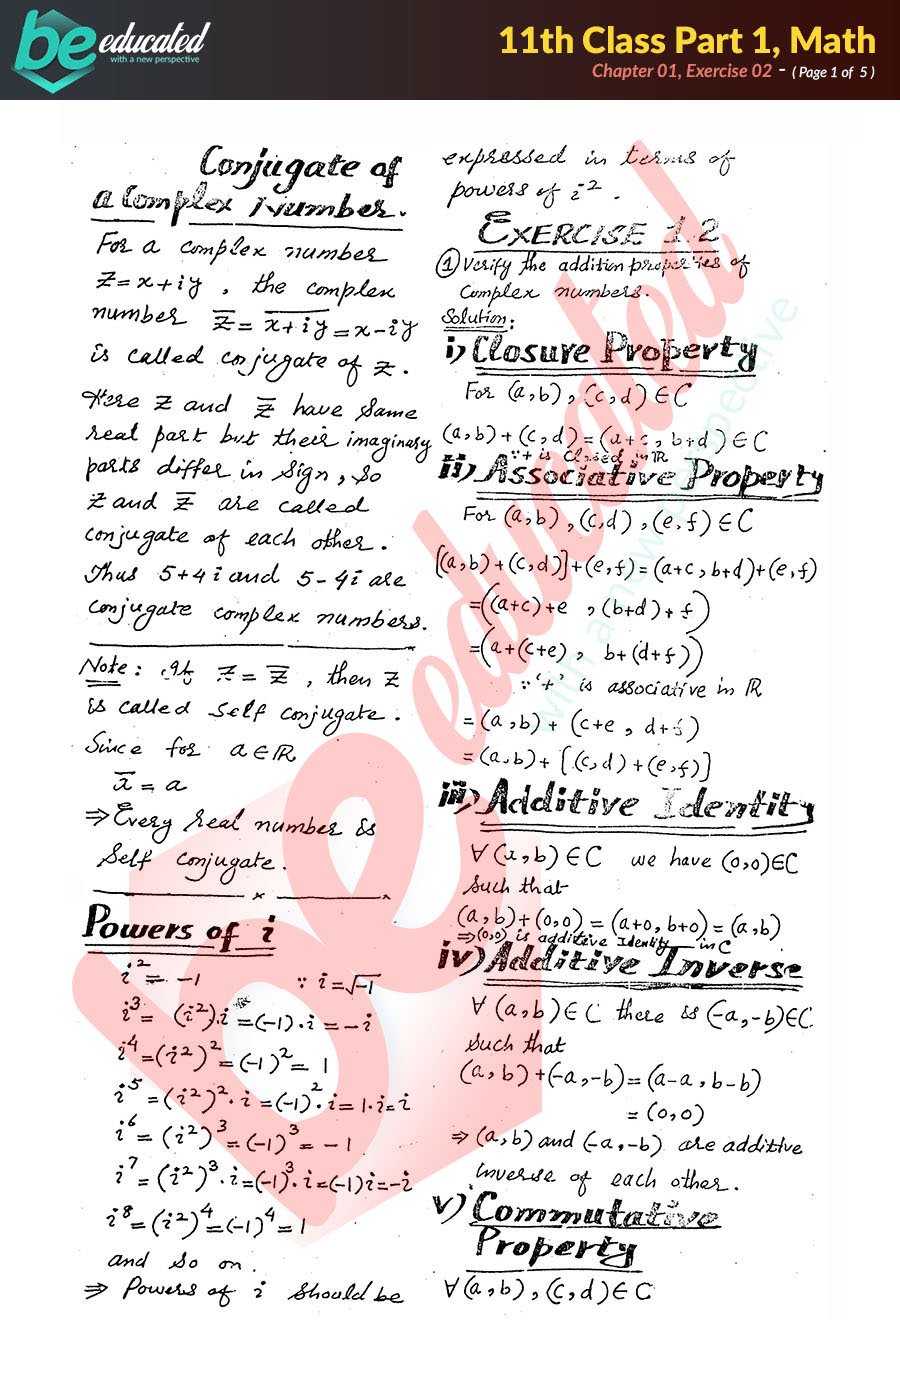 be educated
with a new perspective
11th Class Part 1, Math
Chapter 01, Exercise 02 - ( Page 1 of 5 )
Conjugate of
a Complex Number.
For a complex number
Z = x + iy , the complex
number z̅ = \overline{x + iy} = x - iy
is called conjugate of z.
Here z and z̅ have same
real part but their imaginary
parts differ in sign, so
z and z̅ are called
conjugate of each other.
Thus 5+4i and 5-4i are
conjugate complex numbers.
Note: If z = z̅ , then z
is called self conjugate.
Since for a ∈ ℝ
a̅ = a
⇒ Every real number is
self conjugate.
x
Powers of i
i² = -1 ∵ i = √-1
i³ = (i²).i = (-1).i = -i
i⁴ = (i²)² = (-1)² = 1
i⁵ = (i²)².i = (-1)².i = 1.i = i
i⁶ = (i²)³ = (-1)³ = -1
i⁷ = (i²)³.i = (-1)³.i = (-1)i = -i
i⁸ = (i²)⁴ = (-1)⁴ = 1
and so on.
⇒ Powers of i should be
expressed in terms of
powers of i².
EXERCISE 1.2
① Verify the addition properties of
Complex numbers.
Solution:
i) Closure Property
For (a,b), (c,d) ∈ C
(a,b)+(c,d) = (a+c, b+d) ∈ C
∵ + is Closed in ℝ
ii) Associative Property
For (a,b), (c,d), (e,f) ∈ C
[(a,b)+(c,d)]+(e,f) = (a+c, b+d)+(e,f)
= ((a+c)+e , (b+d)+f)
= (a+(c+e), b+(d+f))
∵ '+' is associative in ℝ
= (a,b) + (c+e, d+f)
= (a,b) + [(c,d)+(e,f)]
iii) Additive Identity
∀ (a,b) ∈ C we have (0,0) ∈ C
such that
(a,b)+(0,0) = (a+0, b+0) = (a,b)
⇒ (0,0) is additive Identity in C
iv) Additive Inverse
∀ (a,b) ∈ C there is (-a,-b) ∈ C
such that
(a,b)+(-a,-b) = (a-a, b-b)
= (0,0)
⇒ (a,b) and (-a,-b) are additive
inverse of each other.
v) Commutative
Property
∀ (a,b), (c,d) ∈ C
be educated
with a new perspective